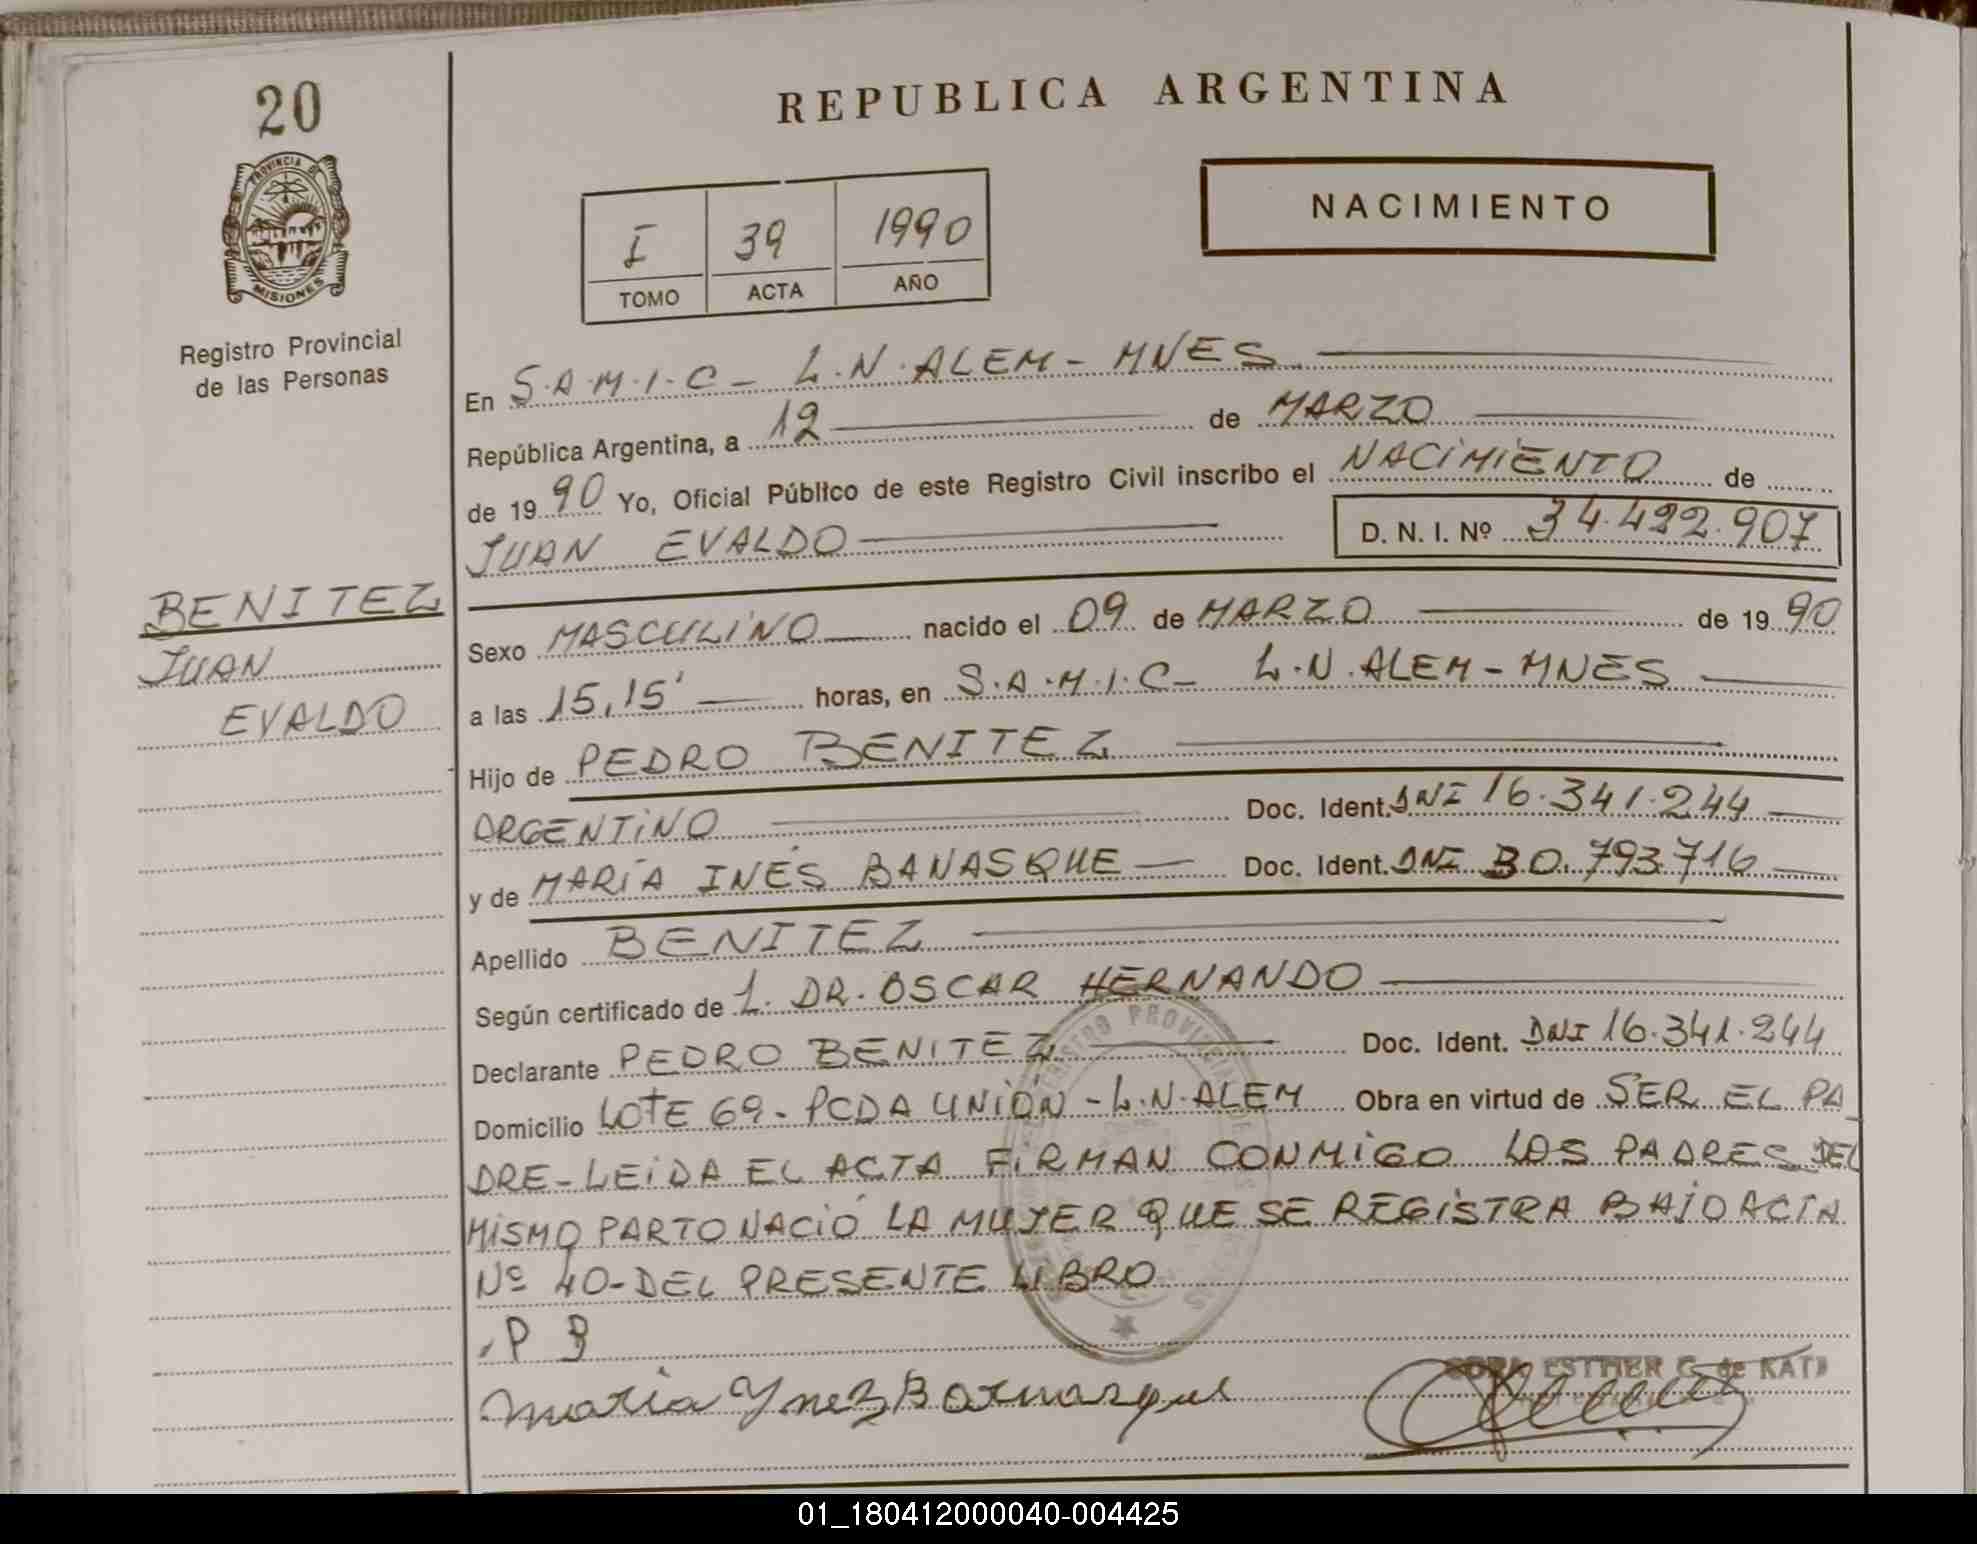 20
PROVINCIA DE
MISIONES
Registro Provincial
de las Personas
BENITEZ
JUAN
EVALDO
REPUBLICA ARGENTINA
I 39 1990
TOMO ACTA AÑO
NACIMIENTO
En S.A.M.I.C - L.N.ALEM - MNES
República Argentina, a 12 de MARZO
de 1990 Yo, Oficial Público de este Registro Civil inscribo el NACIMIENTO de
JUAN EVALDO D. N. I. Nº 34.492.907
Sexo MASCULINO nacido el 09 de MARZO de 1990
a las 15,15' horas, en S.A.M.I.C - L.N.ALEM - MNES
Hijo de PEDRO BENITEZ
ARGENTINO Doc. Ident. DNI 16.341.244
y de MARÍA INÉS BANASQUE Doc. Ident. DNI 30.793.716
Apellido BENITEZ
Según certificado de L. DR. OSCAR HERNANDO
Declarante PEDRO BENITEZ Doc. Ident. DNI 16.341.244
Domicilio LOTE 69 - PCDA UNIÓN - L.N.ALEM Obra en virtud de SER EL PA
DRE - LEIDA EL ACTA FIRMAN CONMIGO LOS PADRES DEL
MISMO PARTO NACIÓ LA MUJER QUE SE REGISTRA BAJO ACTA
Nº 40 - DEL PRESENTE LIBRO
P B
ESTHER G. de KATI
Maria Ynez
01_180412000040-004425